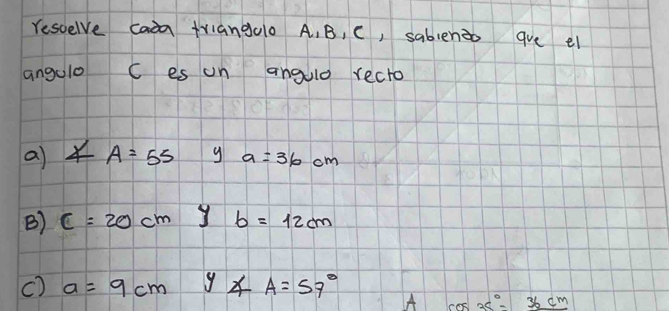 resuelve cada triangulo A,B,C, sabiendo que el
angulo C es un angulo recto
a) ∡ A = 55 y a = 36 cm
B) C = 20 cm y b = 12 cm
C) a = 9 cm y ∡ A = 57°
A cos 35° = 36 cm